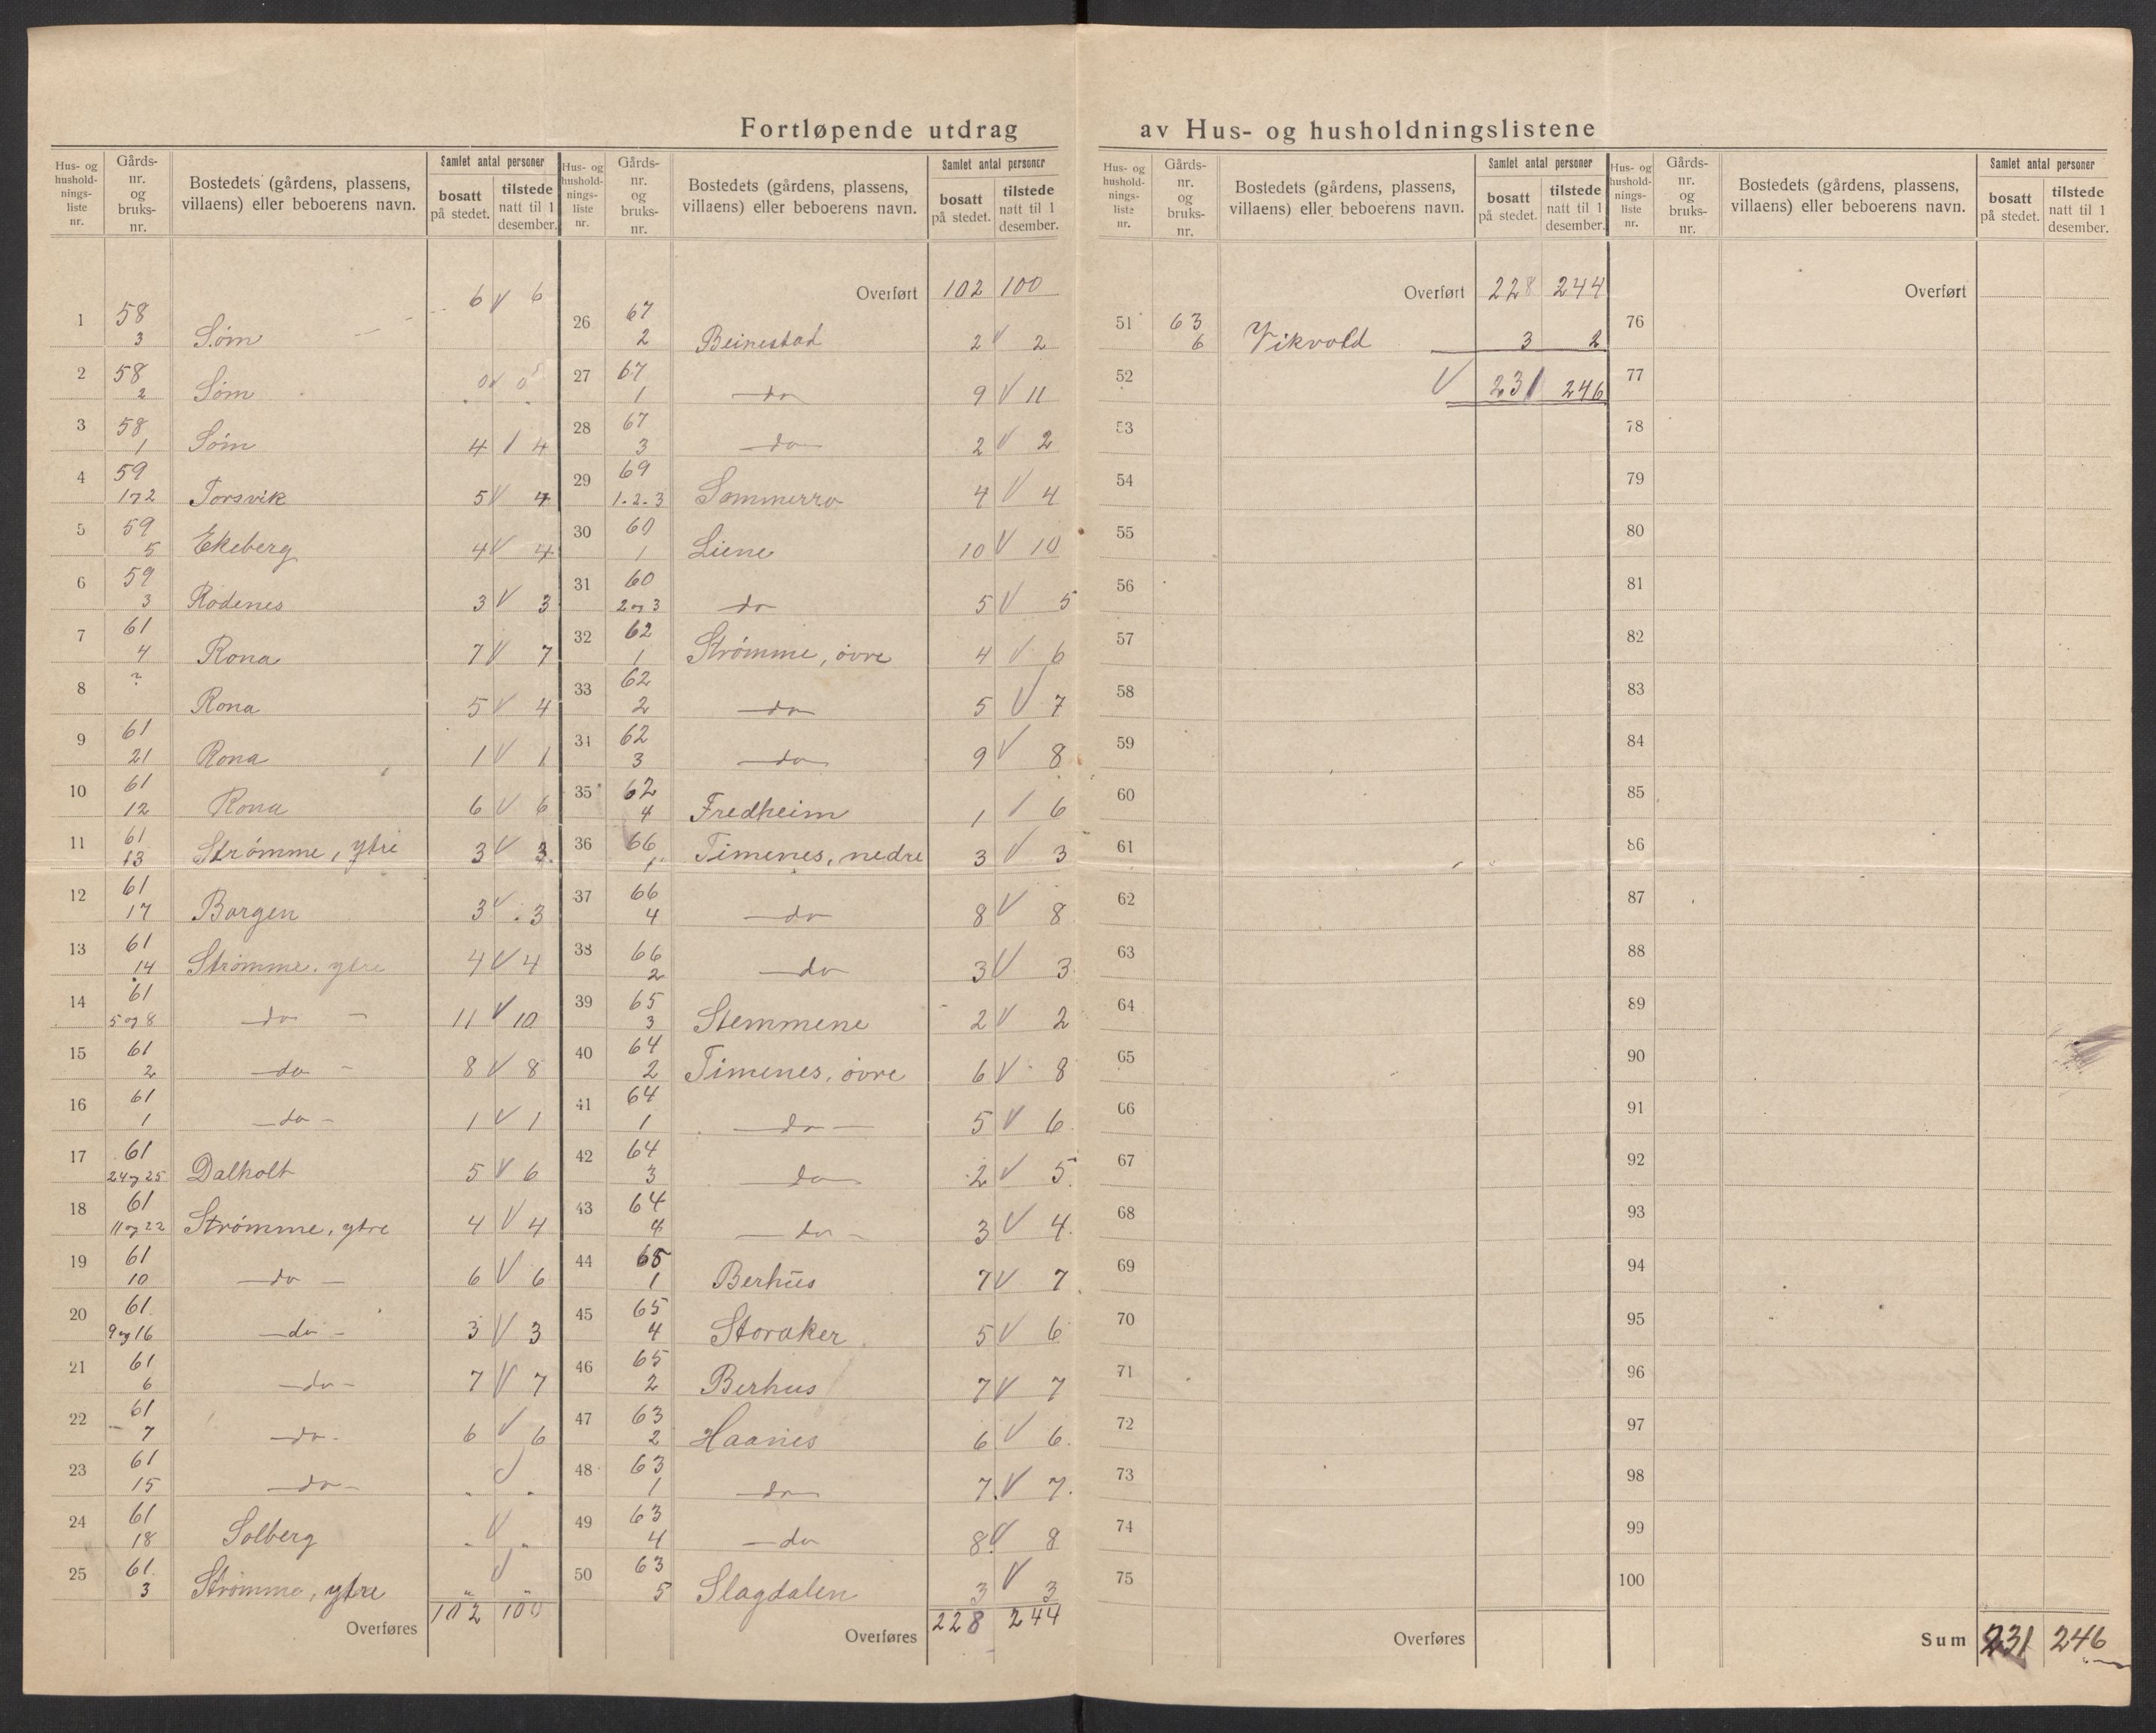 Fortløpende utdrag av Hus- og husholdningslistene
Hus- og hushold-nings-liste nr. | Gårds-nr. og bruks-nr. | Bostedets (gårdens, plassens, villaens) eller beboerens navn. | Samlet antal personer | bosatt på stedet. | tilstede natt til 1 desember.
1 | 58 3 | Søm | 6 V 6
2 | 58 2 | Søm | 0 V 0
3 | 58 1 | Søm | 4 / 4
4 | 59 1 og 2 | Torsvik | 5 V 4
5 | 59 5 | Ekeberg | 4 V 4
6 | 59 3 | Rodenes | 3 V 3
7 | 61 4 | Rona | 7 V 7
8 | ? | Rona | 5 V 4
9 | 61 21 | Rona | 1 V 1
10 | 61 12 | Rona | 6 V 6
11 | 61 13 | Strømme, ytre | 3 V 3
12 | 61 17 | Borgen | 3 V 3
13 | 61 14 | Strømme, ytre | 4 V 4
14 | 61 5 og 8 | — do — | 11 V 10
15 | 61 2 | — do — | 8 V 8
16 | 61 1 | — do — | 1 V 1
17 | 61 24 og 25 | Dalholt | 5 V 6
18 | 61 11 og 22 | Strømme, ytre | 4 V 4
19 | 61 10 | — do — | 6 V 6
20 | 61 9 og 16 | — do — | 3 V 3
21 | 61 6 | — do — | 7 V 7
22 | 61 7 | — do — | 6 V 6
23 | 61 15 | — do — | " V "
24 | 61 18 | Solberg | " V "
25 | 61 3 | Strømme, ytre | " V "
Overføres 102 100
Hus- og hushold-nings-liste nr. | Gårds-nr. og bruks-nr. | Bostedets (gårdens, plassens, villaens) eller beboerens navn. | Samlet antal personer | bosatt på stedet. | tilstede natt til 1 desember.
Overført 102 100
26 | 67 2 | Beinestad | 2 V 2
27 | 67 1 | — do — | 9 V 11
28 | 67 3 | — do — | 2 V 2
29 | 69 1. 2. 3 | Sommerro | 4 V 4
30 | 60 1 | Liene | 10 V 10
31 | 60 2 og 3 | do | 5 V 5
32 | 62 1 | Strømme, øvre | 4 V 6
33 | 62 2 | — do — | 5 V 7
34 | 62 3 | — do — | 9 V 8
35 | 62 4 | Fredheim | 1 / 6
36 | 66 1 | Timenes, nedre | 3 V 3
37 | 66 4 | — do | 8 V 8
38 | 66 2 | — do | 3 V 3
39 | 65 3 | Stemmene | 2 V 2
40 | 64 2 | Timenes, øvre | 6 V 8
41 | 64 1 | — do — | 5 V 6
42 | 64 3 | — do — | 2 V 5
43 | 64 4 | — do — | 3 V 4
44 | 65 1 | Berhus | 7 V 7
45 | 65 4 | Storaker | 5 V 6
46 | 65 2 | Berhus | 7 V 7
47 | 63 2 | Haanes | 6 V 6
48 | 63 1 | — do — | 7 V 7
49 | 63 4 | — do | 8 V 8
50 | 63 5 | Slagdalen | 3 V 3
Overføres 228 244
Hus- og hushold-nings-liste nr. | Gårds-nr. og bruks-nr. | Bostedets (gårdens, plassens, villaens) eller beboerens navn. | Samlet antal personer | bosatt på stedet. | tilstede natt til 1 desember.
Overført 228 244
51 | 63 6 | Vikvold | 3 2
52 | V 231 246
53
54
55
56
57
58
59
60
61
62
63
64
65
66
67
68
69
70
71
72
73
74
75
Overføres
Hus- og hushold-nings-liste nr. | Gårds-nr. og bruks-nr. | Bostedets (gårdens, plassens, villaens) eller beboerens navn. | Samlet antal personer | bosatt på stedet. | tilstede natt til 1 desember.
Overført
76
77
78
79
80
81
82
83
84
85
86
87
88
89
90
91
92
93
94
95
96
97
98
99
100
Sum 231 246